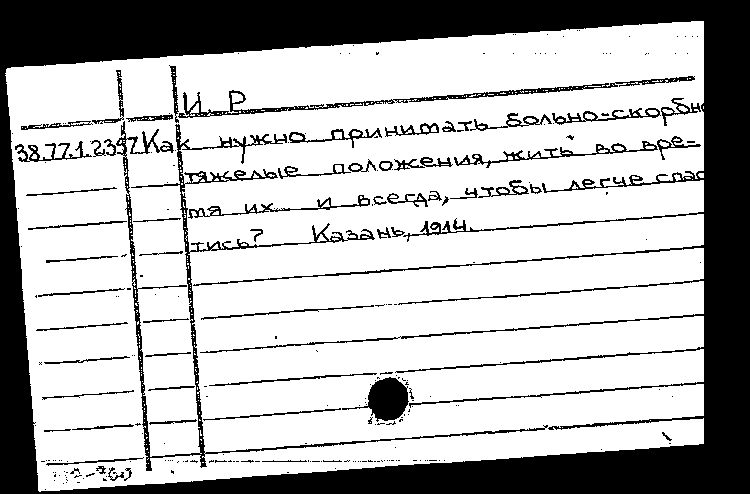 И. Р
38.77.1.2357 Как нужно принимать больно-скорбно
тяжелые положения, жить во вре-
мя их и всегда, чтобы легче спас
тись? Казань, 1914.